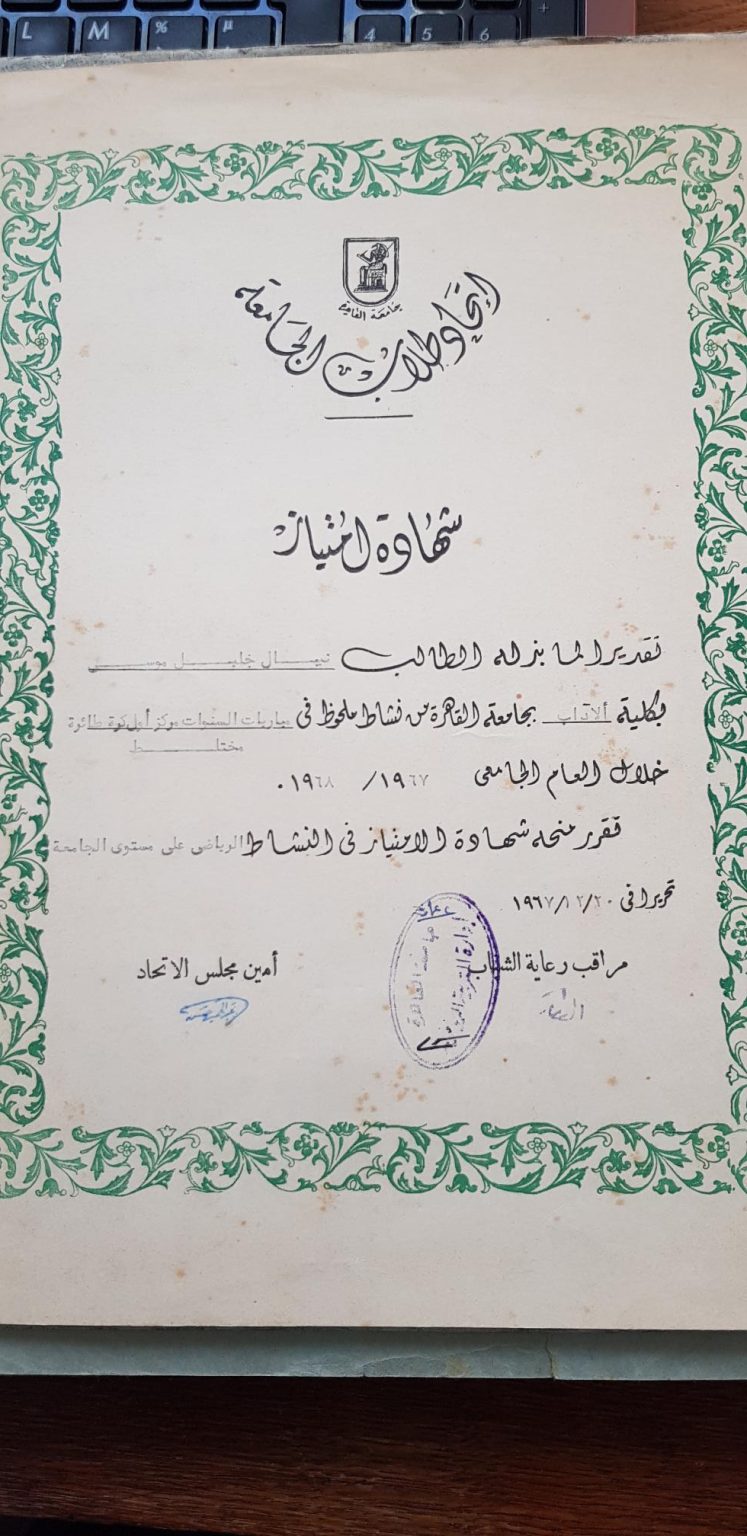 جامعة القاهرة
إتحاد طلاب الجامعة
شهادة امتياز
تقديرا لما بذله الطالب نيـال خليـل موسـى
بكلية الآداب بجامعة القاهرة من نشاط ملحوظ فى مباريات السنوات مركز أول كرة طائرة
مختلـط
خلال العام الجامعى ١٩٦٧ / ١٩٦٨ ٠
فقرر منحه شهادة الامتياز فى النشاط الرياضى على مستوى الجامعة
تحريرا فى ٢٠/١٢/١٩٦٧
مراقب رعاية الشباب
أمين مجلس الاتحاد
جامعة القاهرة
L M % µ 4 5 6 +